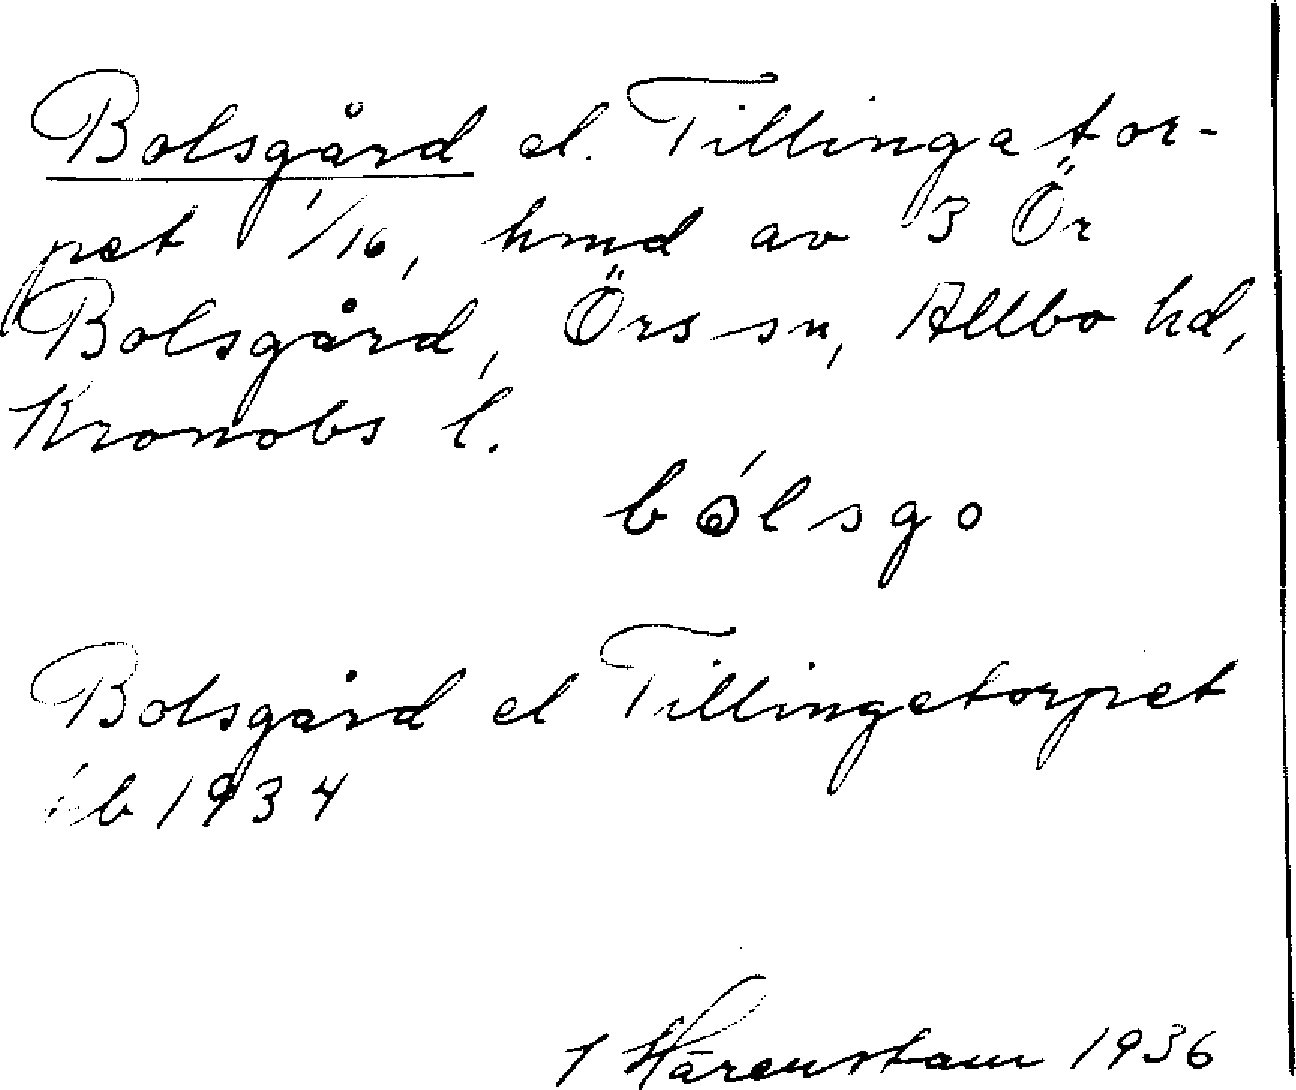 Bolsgård el. Tillingator-
pet 1/16, hmd av 3 Ör
Bolsgård, Örs sn, Allbo hd,
Kronobs l.
bólsgo
Bolsgård el Tillingetorpet
jb 1934
J Härenstam 1936